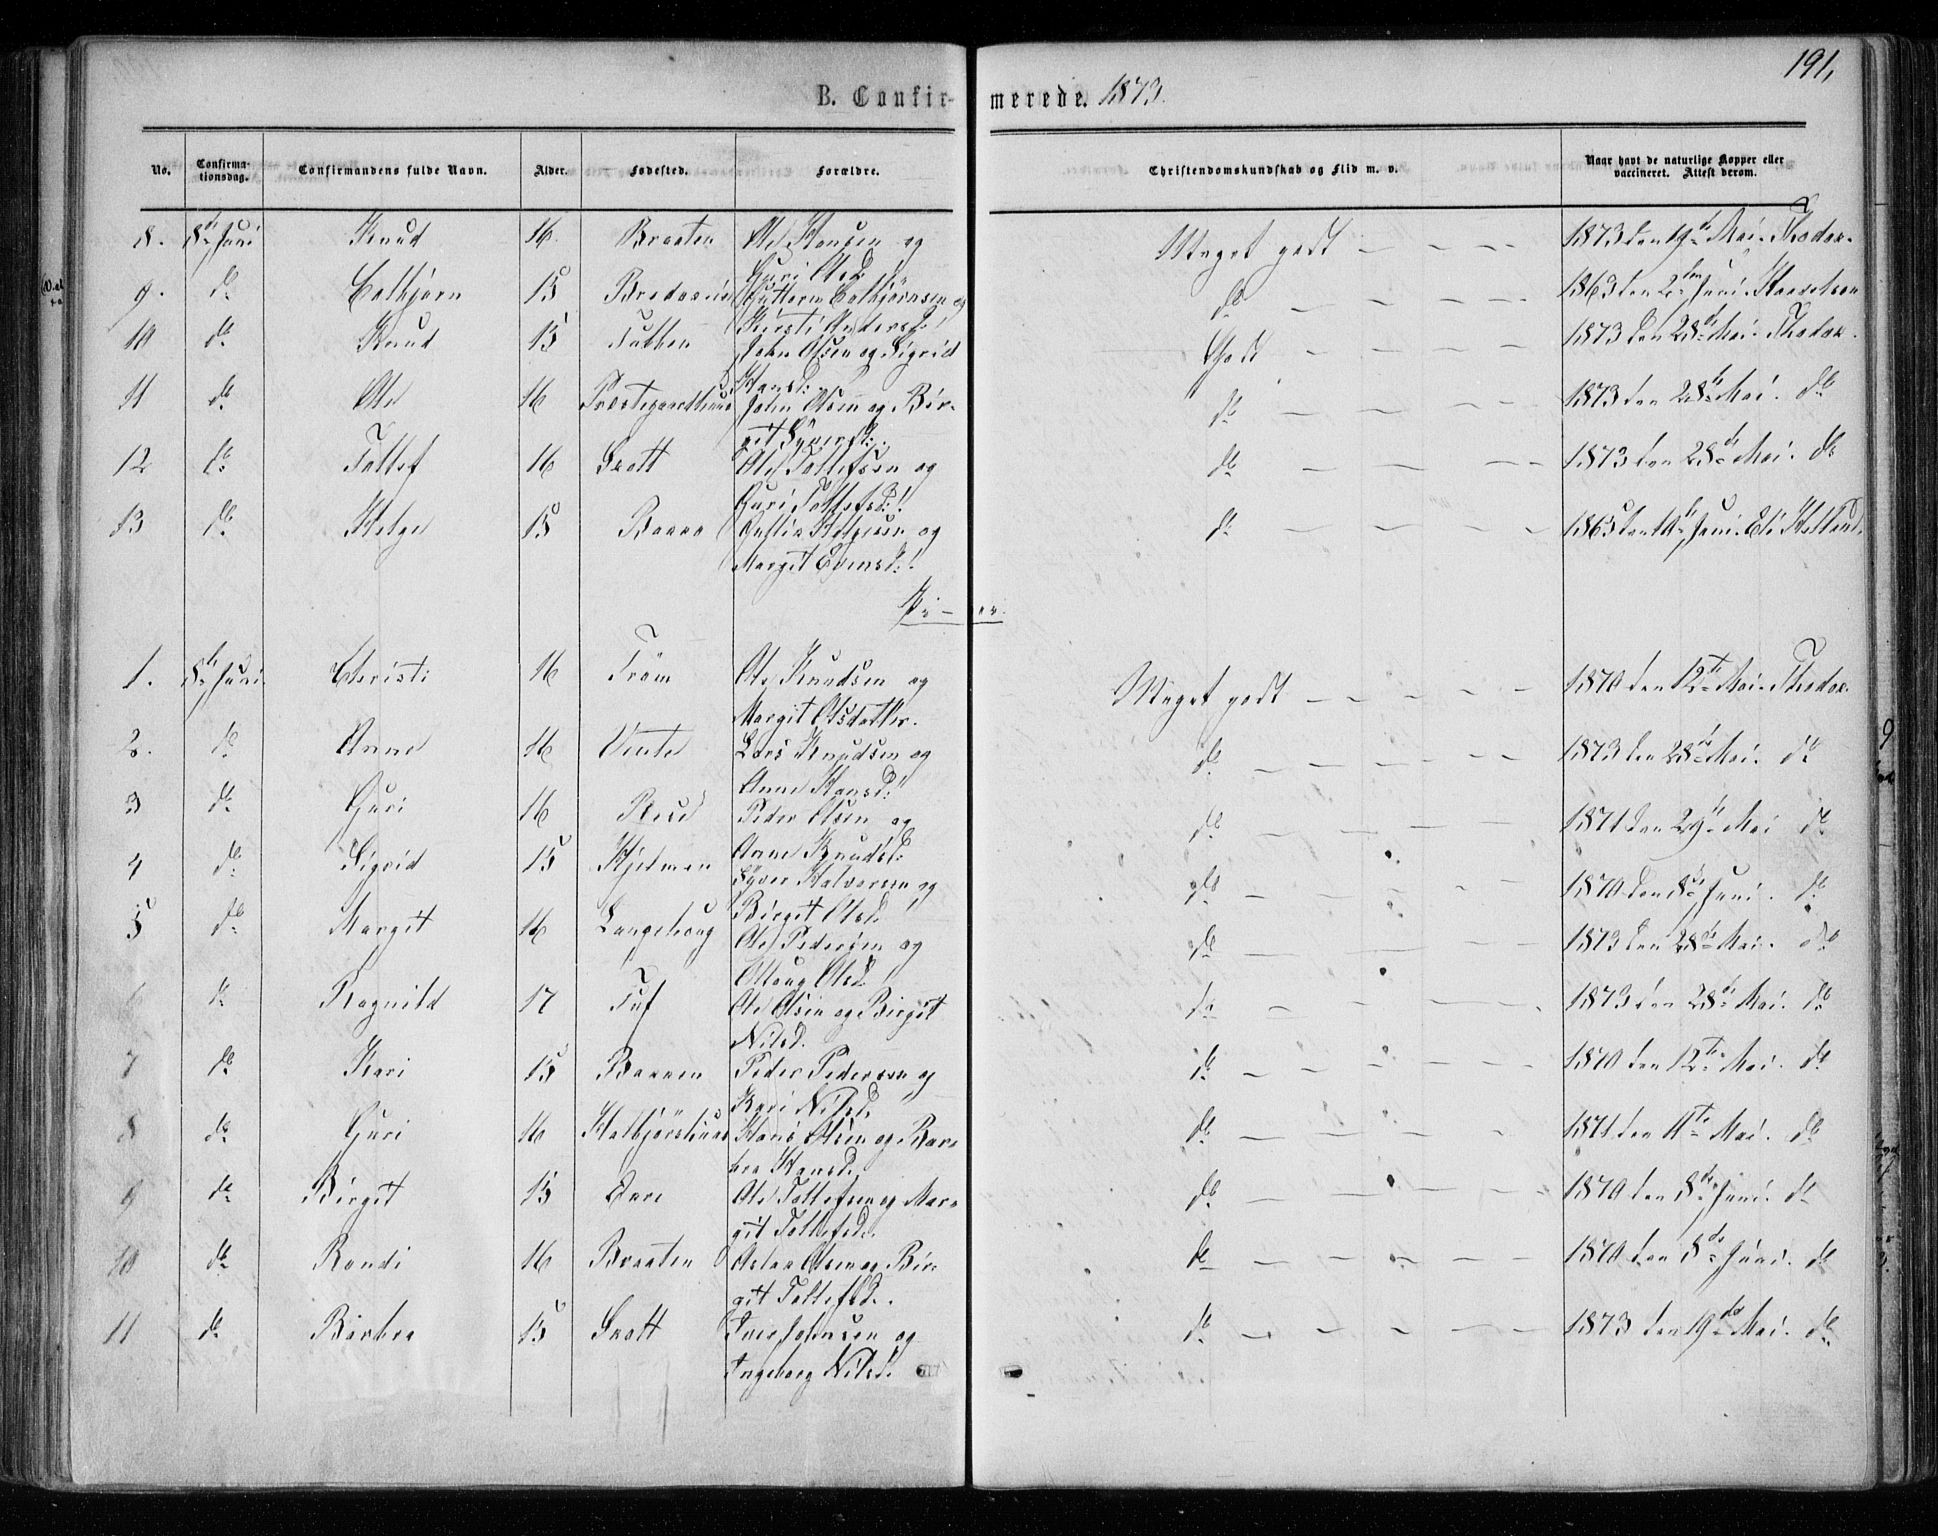 191,
B. Confir- merede. 1873.
No. Confirma-tionsdag. Confirmandens fulde Navn. Alder. Fødested. Forældre. Christendomskundskab og Flid m. v. Naar havt de naturlige Kopper eller vaccineret. Attest derom.
8. 8de Juni Knud 16. Braaten Ole Hansen og Meget godt 1873 den 19de Mai.
Guri Olsd:
9. do Colbjørn 15 Guttorm Colbjørnsen og do 1863 den 2den Juni
Kirsti Andersd:
10 do Knud 15 John Olsen og Sigrid Godt 1873 den 28de Mai.
Hansd:
11 do Ole 16 John Olsen og Bir- do 1873 den 28de Mai. do
git Syversd:
12 do Tollef 16 Ole Tollefsen og do 1873 den 28de Mai. do
Guri Tollefsd:
13 do Helge 15 Helgesen og do 1865 den Juni.
Margit
1. 8de Juni Christi 16 Trøim Ole Knudsen og Meget godt 1870 den 12te Mai.
Margit Olsdatter.
2. do Anne 16 Lars Knudsen og do 1873 den 28de Mai. do
Anne Hansd:
3 do Guri 16 Peder Olsen og do 1871 den 29de Mai do
Anne Knudsd:
4 do Sigrid 15 Syver Halvorsen og do 1870 den 8de Juni. do
Birgit Olsd.
5 do Margit 16 Langehoug Ole Pedersen og do 1873 den 28de Mai. do
Olsd.
6 do Ragnild 17 Tuf Ole Olsen og Birgit do 1873 den 28de Mai. do
Nilsd.
7 do Kari 15 Peder Pedersen og do 1870 den 12te Mai. do
Kari Nilsd.
8 do Guri 16 Hans Olsen og Bar- do 1871 den 11te Mai. do
bra Hansd.
9 do Birgit 15 Ole Tollefsen og Mar- do 1870 den 8de Juni. do
git Tollefsd.
10 do Randi 16 Braaten Olsen og Bir- do 1870 den 8de Juni. do
git Tollefsd.
11 do Barbra 15 Iver Johnsen og do 1873 den 19de Mai. do
Ingeborg Nilsd.